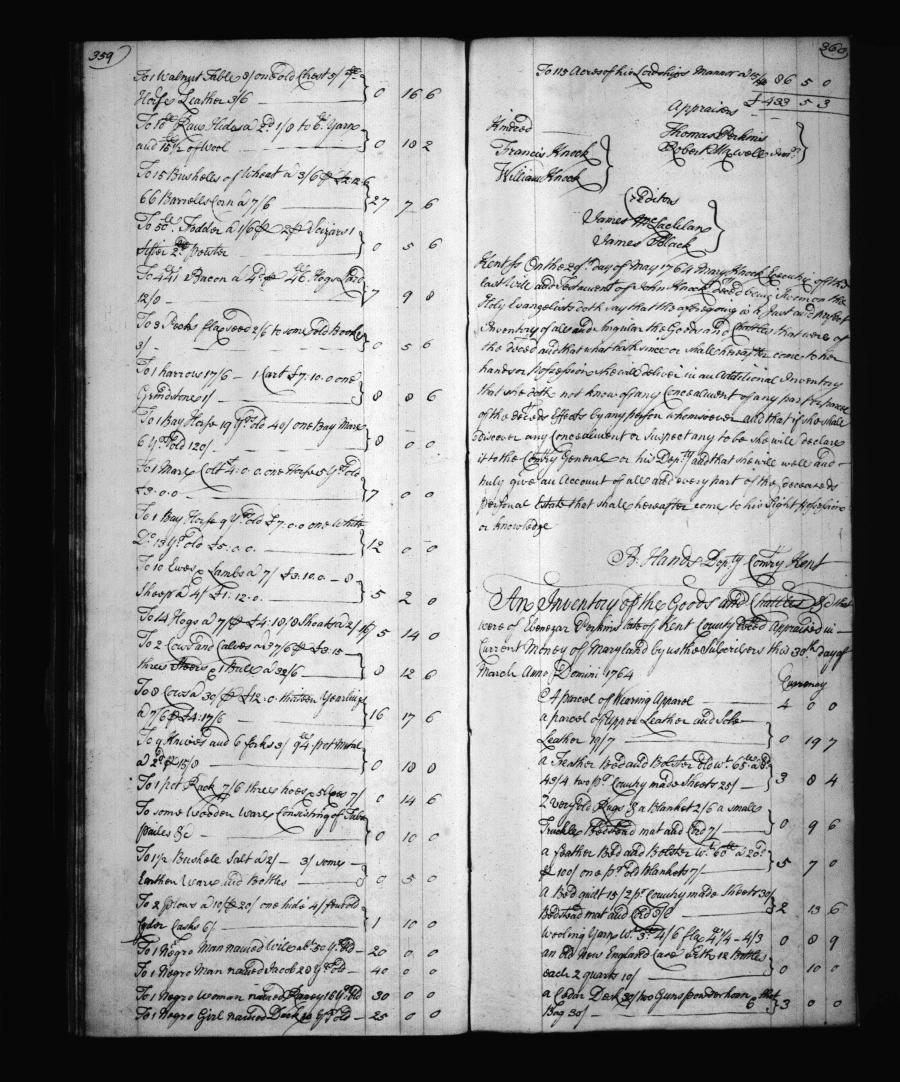 359
To 1 Walnut Table 8/ one old Chest 5/
Horse Leather 3/6 — } 0 16 6
To 10 Raw Hides a 1/0 to 6 Yarn
and 15 1/2 of Wool } 0 18 2
To 15 Bushells of Wheat a 3/6
66 Barrells Corn a 7/6 } 27 7 6
To Fodder a 1/6 Scizars 1
pewter } 0 5 6
To 441 Bacon a 4 46 Hogs Lard
12/0 — } 7 9 8
To 3 Pecks flaxseed 2/6 to some old Books
3/ — } 0 5 6
To 1 harrow 17/6 — 1 Cart £7.10.0 one
Grindstone 1/ } 8 8 6
To 1 Bay Horse 19 Yr Old 40/ one Bay Mare
6 Yr Old 120/ } 8 0 0
To 1 Mare Colt £4.0.0 one Horse 5 Yr Old
£3.0.0 — } 7 0 0
To 1 Bay Horse 9 Yr Old £7.0.0 one White
Do 13 Yr Old £5.0.0. } 12 0 0
To 10 Ewes & Lambs a 7/ £3.10.0 — 8
Sheep a 4/ £1.12.0. } 5 2 0
To 14 Hogs a 7/ £4.18/ 8 Shoats a 2/ 5 14 0
To 2 Cows and Calves a 37/6 £3.15
three Steers 1 Bull a 32/6 } 8 12 6
To 8 Cows a 30/ £12.0 thirteen Yearlings
a 7/6 £4.17/6 } 16 17 6
To 9 Knives and 6 forks 3/ 94 pot Metal
a 2 15/8 } 0 18 8
To 1 pot Rack 7/6 three hoes 7/ 0 14 6
To some Wooden Ware Consisting of Tubs
pailes &c — } 0 10 0
To 1 1/2 Bushels Salt a 2/ — 3/ some —
Earthen Ware and Bottles } 0 5 0
To 2 plows a 10/ 20/ one hide 4/ four old
Cyder Casks 6/ } 1 10 0
To 1 Negro Man named Will abt 50 Yr Old — 20 0 0
To 1 Negro Man named Jacob 20 Yr Old — 40 0 0
To 1 Negro Woman named 16 Yr Old 30 0 0
To 1 Negro Girl named Yr old — 25 0 0
360
To 115 Acres of his Lordships Mannor a 15/ 86 5 0
£433 5 3
Appraisers
Kindred
Francis Knock
William Knock
Thomas Perkins
Robert Maxwell Junr
Creditors
James McLachlan
James Black
Kent ss On the 29th day of May 1764 Mary Knock Executrix of the
last Will and Testament of John Knock deced being Sworn on the
Holy Evangelists doth say that the aforegoing is a Just and perfect
Inventory of all and singular the Goods and Chattles that were of
the deced and that what hath since or shall hereafter come to her
hands or possession she will deliver in an Additional Inventory
that she doth not know of any Concealment of any part or parcel
of the deceds Effects by any person whomsoever and that if she shall
discover any Concealment or suspect any to be she will declare
it to the Comry General or his Depty and that she will well and
truly give an Account of all and every part of the deceaseds
personal Estate that shall hereafter come to his Sight possession
or knowledge
R. Hands Depty Comry Kent
An Inventory of the Goods and Chattles &c that
were of Ebenezar Perkins late of Kent County deced Appraised in
Current Money of Maryland by us the Subscribers this 30th day of
March Anno Domini 1764
Currency
A parcel of Wearing Apparel 4 0 0
a parcel of Upper Leather and Sole
Leather 19/7 } 0 19 7
a Feather Bed and Bolster
43/4 two pr Country made Sheets 25/ } 3 8 4
2 very old Rugs & a Blanket 2/6 a small
Truckle Bedstead mat and Cord 7/ } 0 9 6
a feather Bed and Bolster Wt 60 a 20
100/ one pr old Blankets 7/ } 5 7 0
a Bed quilt 15/ 2 pr Country made Sheets 30/
Bedstead mat and Cord } 2 13 6
Wooling Yarn Wt 3 4/6 flax 4 1/4 — 4/3 0 8 9
an old New England Case with 12 Bottles
each 2 quarts 10/ } 0 10 0
a Cedar Desk 30/ two Guns powderhorn & shot
Bag 30/ — } 3 0 0